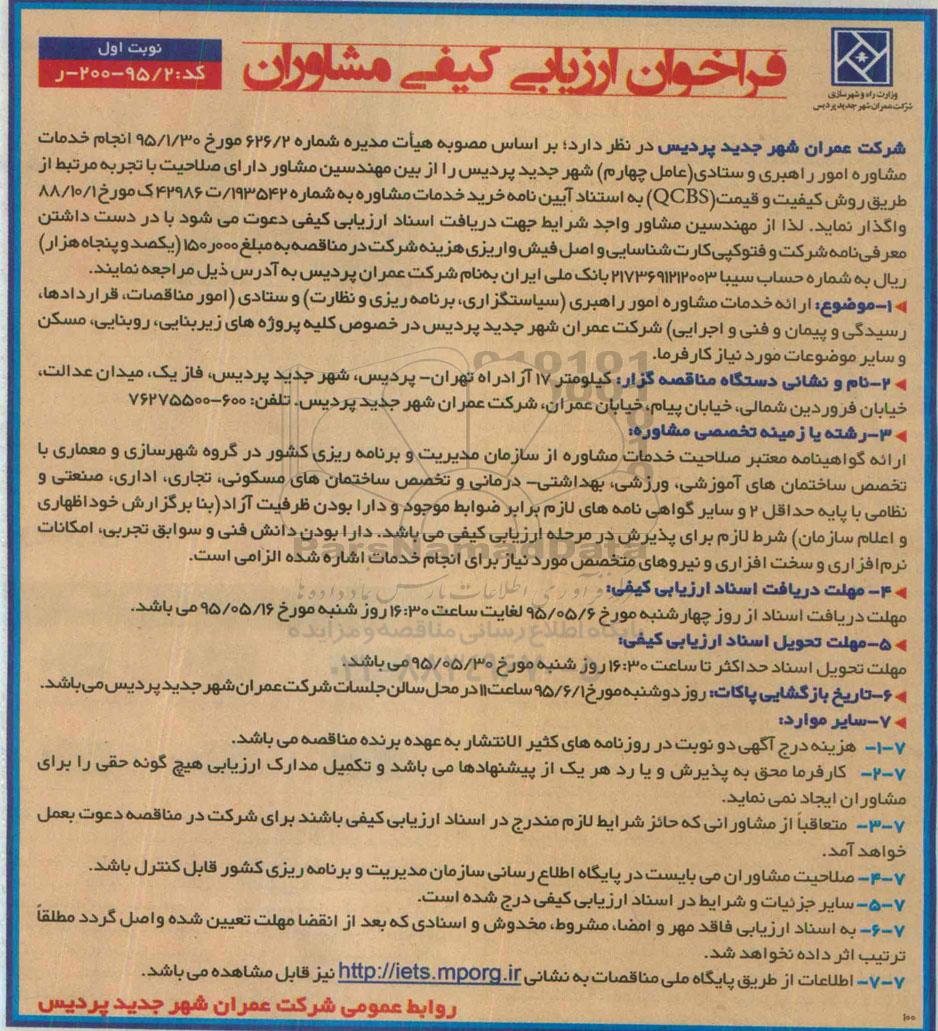 نوبت اول
کد: ۹۵/۲-۲۰۰-ر
فراخوان ارزیابی کیفی مشاوران
وزارت راه و شهرسازی
شرکت عمران شهر جدید پردیس
شرکت عمران شهر جدید پردیس در نظر دارد؛ بر اساس مصوبه هیأت مدیره شماره ۶۲۶/۲ مورخ ۹۵/۱/۳۰ انجام خدمات
مشاوره امور راهبری و ستادی(عامل چهارم) شهر جدید پردیس را از بین مهندسین مشاور دارای صلاحیت با تجربه مرتبط از
طریق روش کیفیت و قیمت(QCBS) به استناد آیین نامه خرید خدمات مشاوره به شماره ۱۹۳۵۴۲/ت۴۲۹۸۶ک مورخ ۸۸/۱۰/۱
واگذار نماید. لذا از مهندسین مشاور واجد شرایط جهت دریافت اسناد ارزیابی کیفی دعوت می شود با در دست داشتن
معرفی نامه شرکت و فتوکپی کارت شناسایی و اصل فیش واریزی هزینه شرکت در مناقصه به مبلغ ۱۵۰٫۰۰۰ (یکصد و پنجاه هزار)
ریال به شماره حساب سیبا ۲۱۷۳۶۹۱۲۱۲۰۰۳ بانک ملی ایران به‌نام شرکت عمران پردیس به آدرس ذیل مراجعه نمایند.
۱-موضوع: ارائه خدمات مشاوره امور راهبری (سیاستگزاری، برنامه ریزی و نظارت) و ستادی (امور مناقصات، قراردادها،
رسیدگی و پیمان و فنی و اجرایی) شرکت عمران شهر جدید پردیس در خصوص کلیه پروژه های زیربنایی، روبنایی، مسکن
و سایر موضوعات مورد نیاز کارفرما.
۲-نام و نشانی دستگاه مناقصه گزار: کیلومتر ۱۷ آزادراه تهران- پردیس، شهر جدید پردیس، فاز یک، میدان عدالت،
خیابان فروردین شمالی، خیابان پیام، خیابان عمران، شرکت عمران شهر جدید پردیس. تلفن: ۶۰۰-۷۶۲۷۵۵۰۰
۳-رشته یا زمینه تخصصی مشاوره:
ارائه گواهینامه معتبر صلاحیت خدمات مشاوره از سازمان مدیریت و برنامه ریزی کشور در گروه شهرسازی و معماری با
تخصص ساختمان های آموزشی، ورزشی، بهداشتی- درمانی و تخصص ساختمان های مسکونی، تجاری، اداری، صنعتی و
نظامی با پایه حداقل ۲ و سایر گواهی نامه های لازم برابر ضوابط موجود و دارا بودن ظرفیت آزاد(بنا برگزارش خوداظهاری
و اعلام سازمان) شرط لازم برای پذیرش در مرحله ارزیابی کیفی می باشد. دارا بودن دانش فنی و سوابق تجربی، امکانات
نرم افزاری و سخت افزاری و نیروهای متخصص مورد نیاز برای انجام خدمات اشاره شده الزامی است.
۴- مهلت دریافت اسناد ارزیابی کیفی:
مهلت دریافت اسناد از روز چهارشنبه مورخ ۹۵/۰۵/۶ لغایت ساعت ۱۶:۳۰ روز شنبه مورخ ۹۵/۰۵/۱۶ می باشد.
۵-مهلت تحویل اسناد ارزیابی کیفی:
مهلت تحویل اسناد حداکثر تا ساعت ۱۶:۳۰ روز شنبه مورخ ۹۵/۰۵/۳۰ می باشد.
۶-تاریخ بازگشایی پاکات: روز دوشنبه مورخ ۹۵/۶/۱ ساعت ۱۱ در محل سالن جلسات شرکت عمران شهر جدید پردیس می باشد.
۷-سایر موارد:
۷-۱- هزینه درج آگهی دو نوبت در روزنامه های کثیر الانتشار به عهده برنده مناقصه می باشد.
۷-۲- کارفرما محق به پذیرش و یا رد هر یک از پیشنهادها می باشد و تکمیل مدارک ارزیابی هیچ گونه حقی را برای
مشاوران ایجاد نمی نماید.
۷-۳- متعاقباً از مشاورانی که حائز شرایط لازم مندرج در اسناد ارزیابی کیفی باشند برای شرکت در مناقصه دعوت بعمل
خواهد آمد.
۷-۴- صلاحیت مشاوران می بایست در پایگاه اطلاع رسانی سازمان مدیریت و برنامه ریزی کشور قابل کنترل باشد.
۷-۵- سایر جزئیات و شرایط در اسناد ارزیابی کیفی درج شده است.
۷-۶- به اسناد ارزیابی فاقد مهر و امضا، مشروط، مخدوش و اسنادی که بعد از انقضا مهلت تعیین شده واصل گردد مطلقاً
ترتیب اثر داده نخواهد شد.
۷-۷- اطلاعات از طریق پایگاه ملی مناقصات به نشانی http://iets.mporg.ir نیز قابل مشاهده می باشد.
روابط عمومی شرکت عمران شهر جدید پردیس
۱۰۰